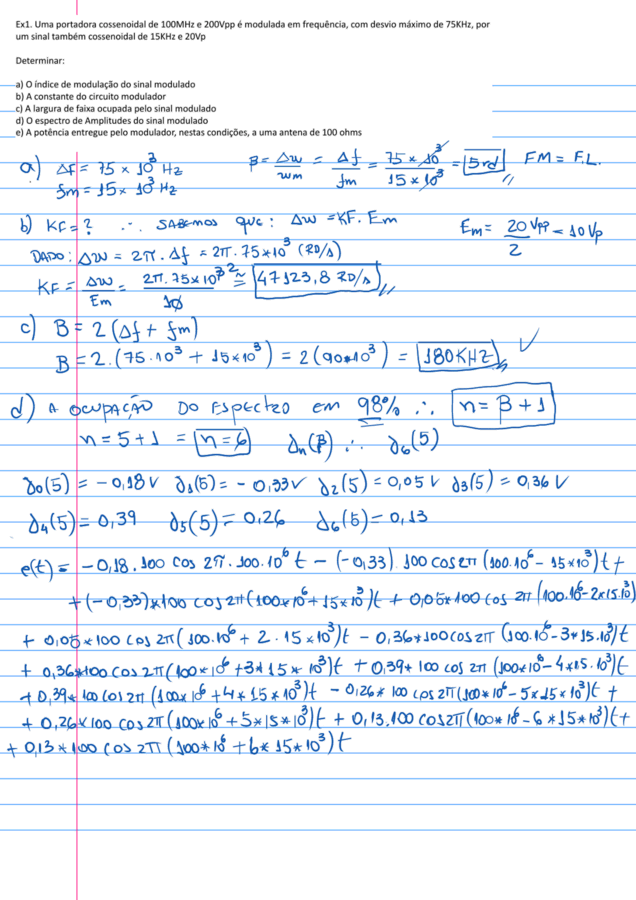 Ex1. Uma portadora cossenoidal de 100MHz e 200Vpp é modulada em frequência, com desvio máximo de 75KHz, por
um sinal também cossenoidal de 15KHz e 20Vp
Determinar:
a) O índice de modulação do sinal modulado
b) A constante do circuito modulador
c) A largura de faixa ocupada pelo sinal modulado
d) O espectro de Amplitudes do sinal modulado
e) A potência entregue pelo modulador, nestas condições, a uma antena de 100 ohms
a) Δf = 75 × 10³ Hz β = Δω/ωm = Δf/fm = 75 × 10³/15 × 10³ = 5 rd FM = F.L.
fm = 15 × 10³ Hz
b) KF = ? ∴ SABEMOS que: Δω = KF. Em Em = 20Vpp/2 = 10 Vp
DADO: Δω = 2π. Δf = 2π. 75×10³ (RD/s)
KF = Δω/Em = 2π. 75×10³ ²/10 ≅ 47123,8 RD/s
c) B = 2(Δf + fm)
B = 2. (75.10³ + 15×10³) = 2(90*10³) = 180KHz ✓
d) A OCUPAÇÃO DO ESPECTRO em 98% ∴ n = β + 1
n = 5+1 = n = 6 Jn(β) ∴ J6(5)
J0(5) = -0,18 V J1(5) = -0,33V J2(5) = 0,05 V J3(5) = 0,36 V
J4(5) = 0,39 J5(5) = 0,26 J6(5) = 0,13
e(t) = -0,18. 100 cos 2π. 100.10⁶ t - (-0,33). 100 cos 2π (100.10⁶ - 15×10³)t +
+ (-0,33)*100 cos 2π (100×10⁶ + 15×10³)t + 0,05*100 cos 2π (100.10⁶ - 2×15.10³)
+ 0,05*100 cos 2π (100.10⁶ + 2. 15×10³)t - 0,36*100 cos 2π (100.10⁶ - 3*15.10³)t
+ 0,36*100 cos 2π (100×10⁶ + 3*15×10³)t + 0,39*100 cos 2π (100×10⁶ - 4×15.10³)t
+ 0,39*100 cos 2π (100×10⁶ + 4*15×10³)t - 0,26*100 cos 2π (100*10⁶ - 5×15×10³)t +
+ 0,26×100 cos 2π (100×10⁶ + 5*15*10³)t + 0,13.100 cos 2π (100*10⁶ - 6*15*10³)t +
+ 0,13*100 cos 2π (100*10⁶ + 6*15*10³)t